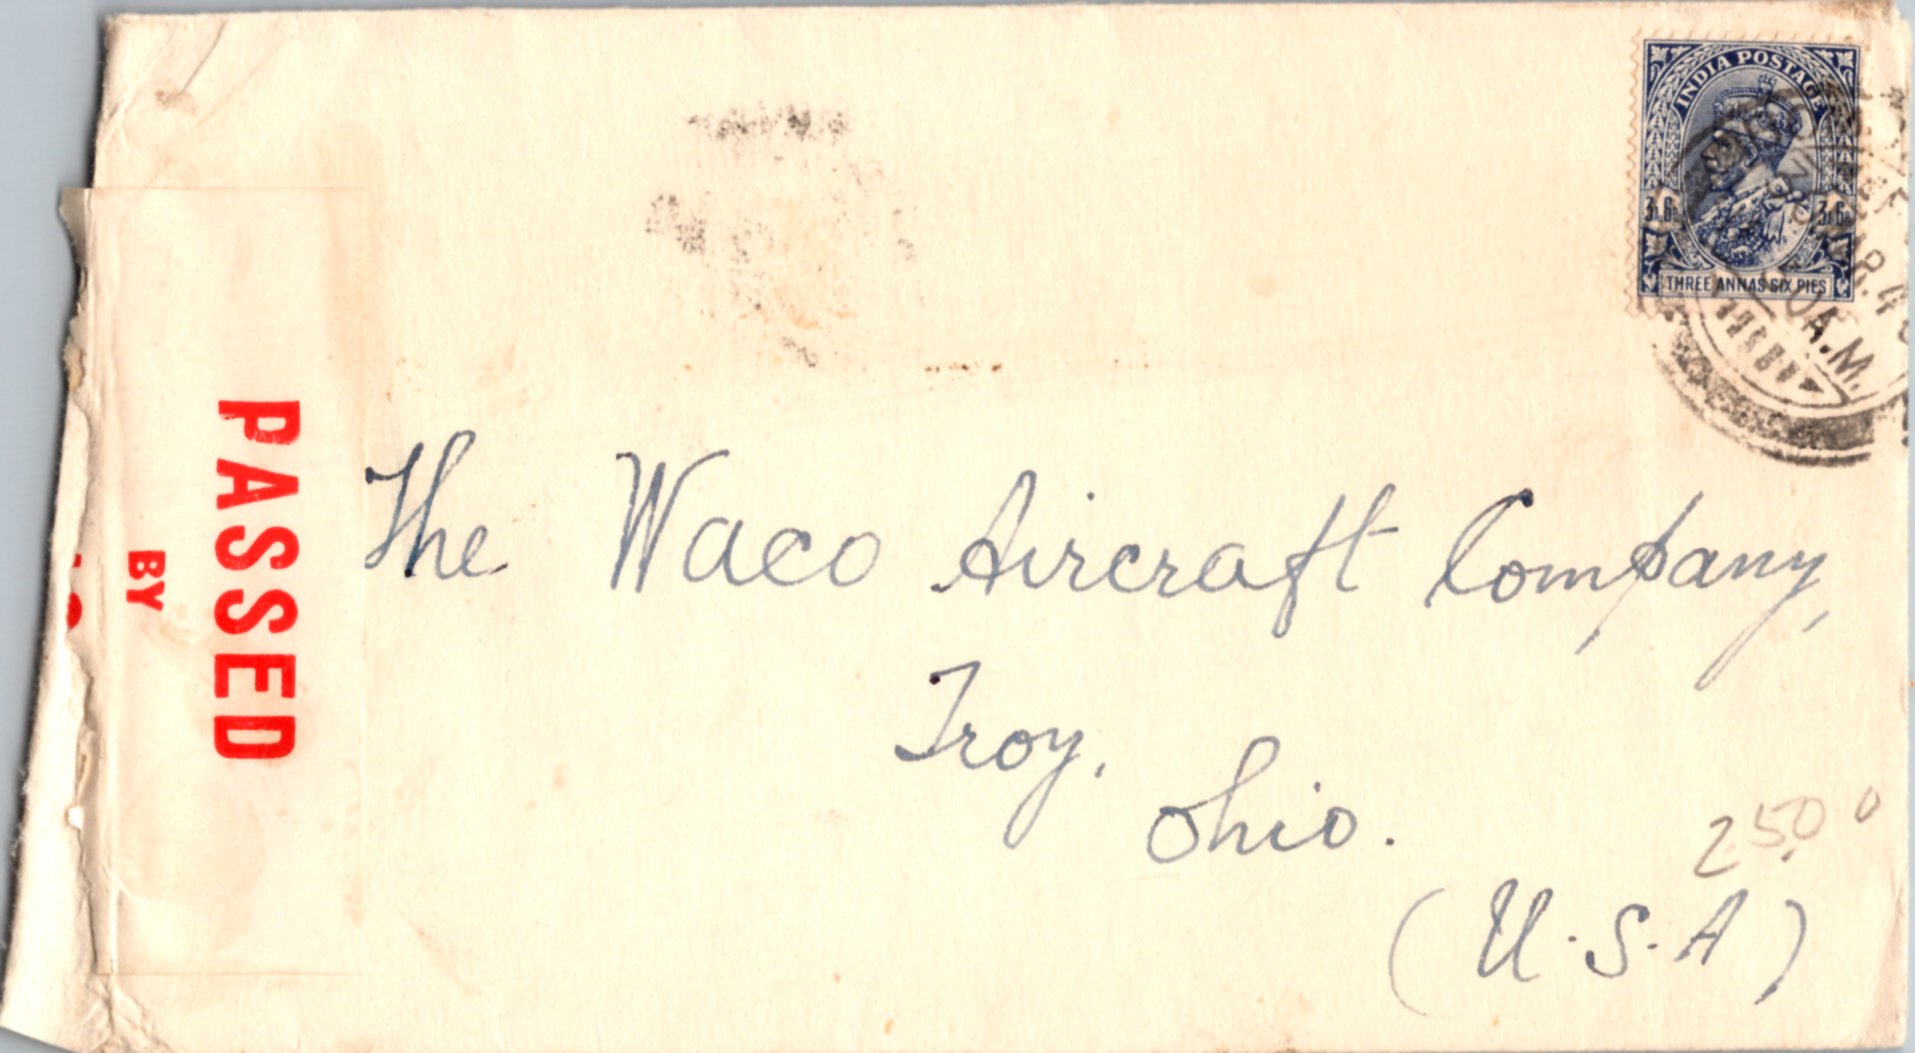 INDIA POSTAGE
3A.6P. 3A.6P.
THREE ANNAS SIX PIES
A.M.
PASSED
BY
The Waco Aircraft Company,
Troy.
Ohio.
(U.S.A)